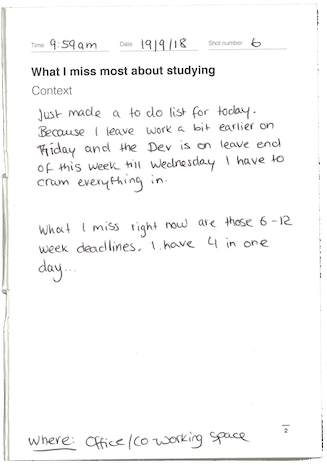 Time 9:59am Date 19/9/18 Shot number 6
What I miss most about studying
Context
Just made a to do list for today.
Because I leave work a bit earlier on
Friday and the Dev is on leave end
of this week till Wednesday I have to
cram everything in.
What I miss right now are those 6-12
week deadlines, I have 4 in one
day...
2
Where: Office/Co-working space